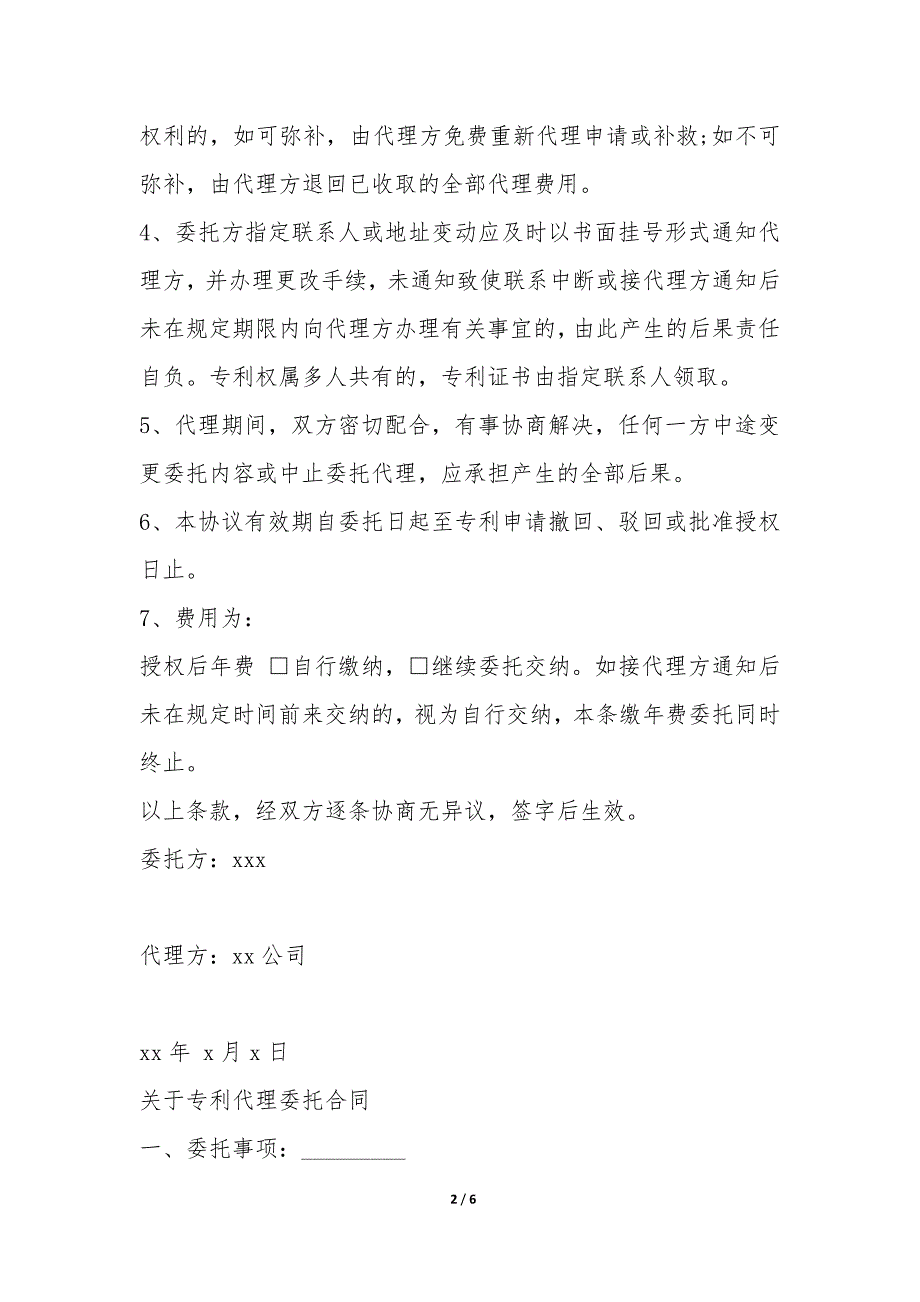 权利的，如可弥补，由代理方免费重新代理申请或补救;如不可
弥补，由代理方退回已收取的全部代理费用。
4、委托方指定联系人或地址变动应及时以书面挂号形式通知代
理方，并办理更改手续，未通知致使联系中断或接代理方通知后
未在规定期限内向代理方办理有关事宜的，由此产生的后果责任
自负。专利权属多人共有的，专利证书由指定联系人领取。
5、代理期间，双方密切配合，有事协商解决，任何一方中途变
更委托内容或中止委托代理，应承担产生的全部后果。
6、本协议有效期自委托日起至专利申请撤回、驳回或批准授权
日止。
7、费用为：
授权后年费 □自行缴纳，□继续委托交纳。如接代理方通知后
未在规定时间前来交纳的，视为自行交纳，本条缴年费委托同时
终止。
以上条款，经双方逐条协商无异议，签字后生效。
委托方：xxx
代理方：xx 公司
xx 年 x 月 x 日
关于专利代理委托合同
一、委托事项：_________
2 / 6